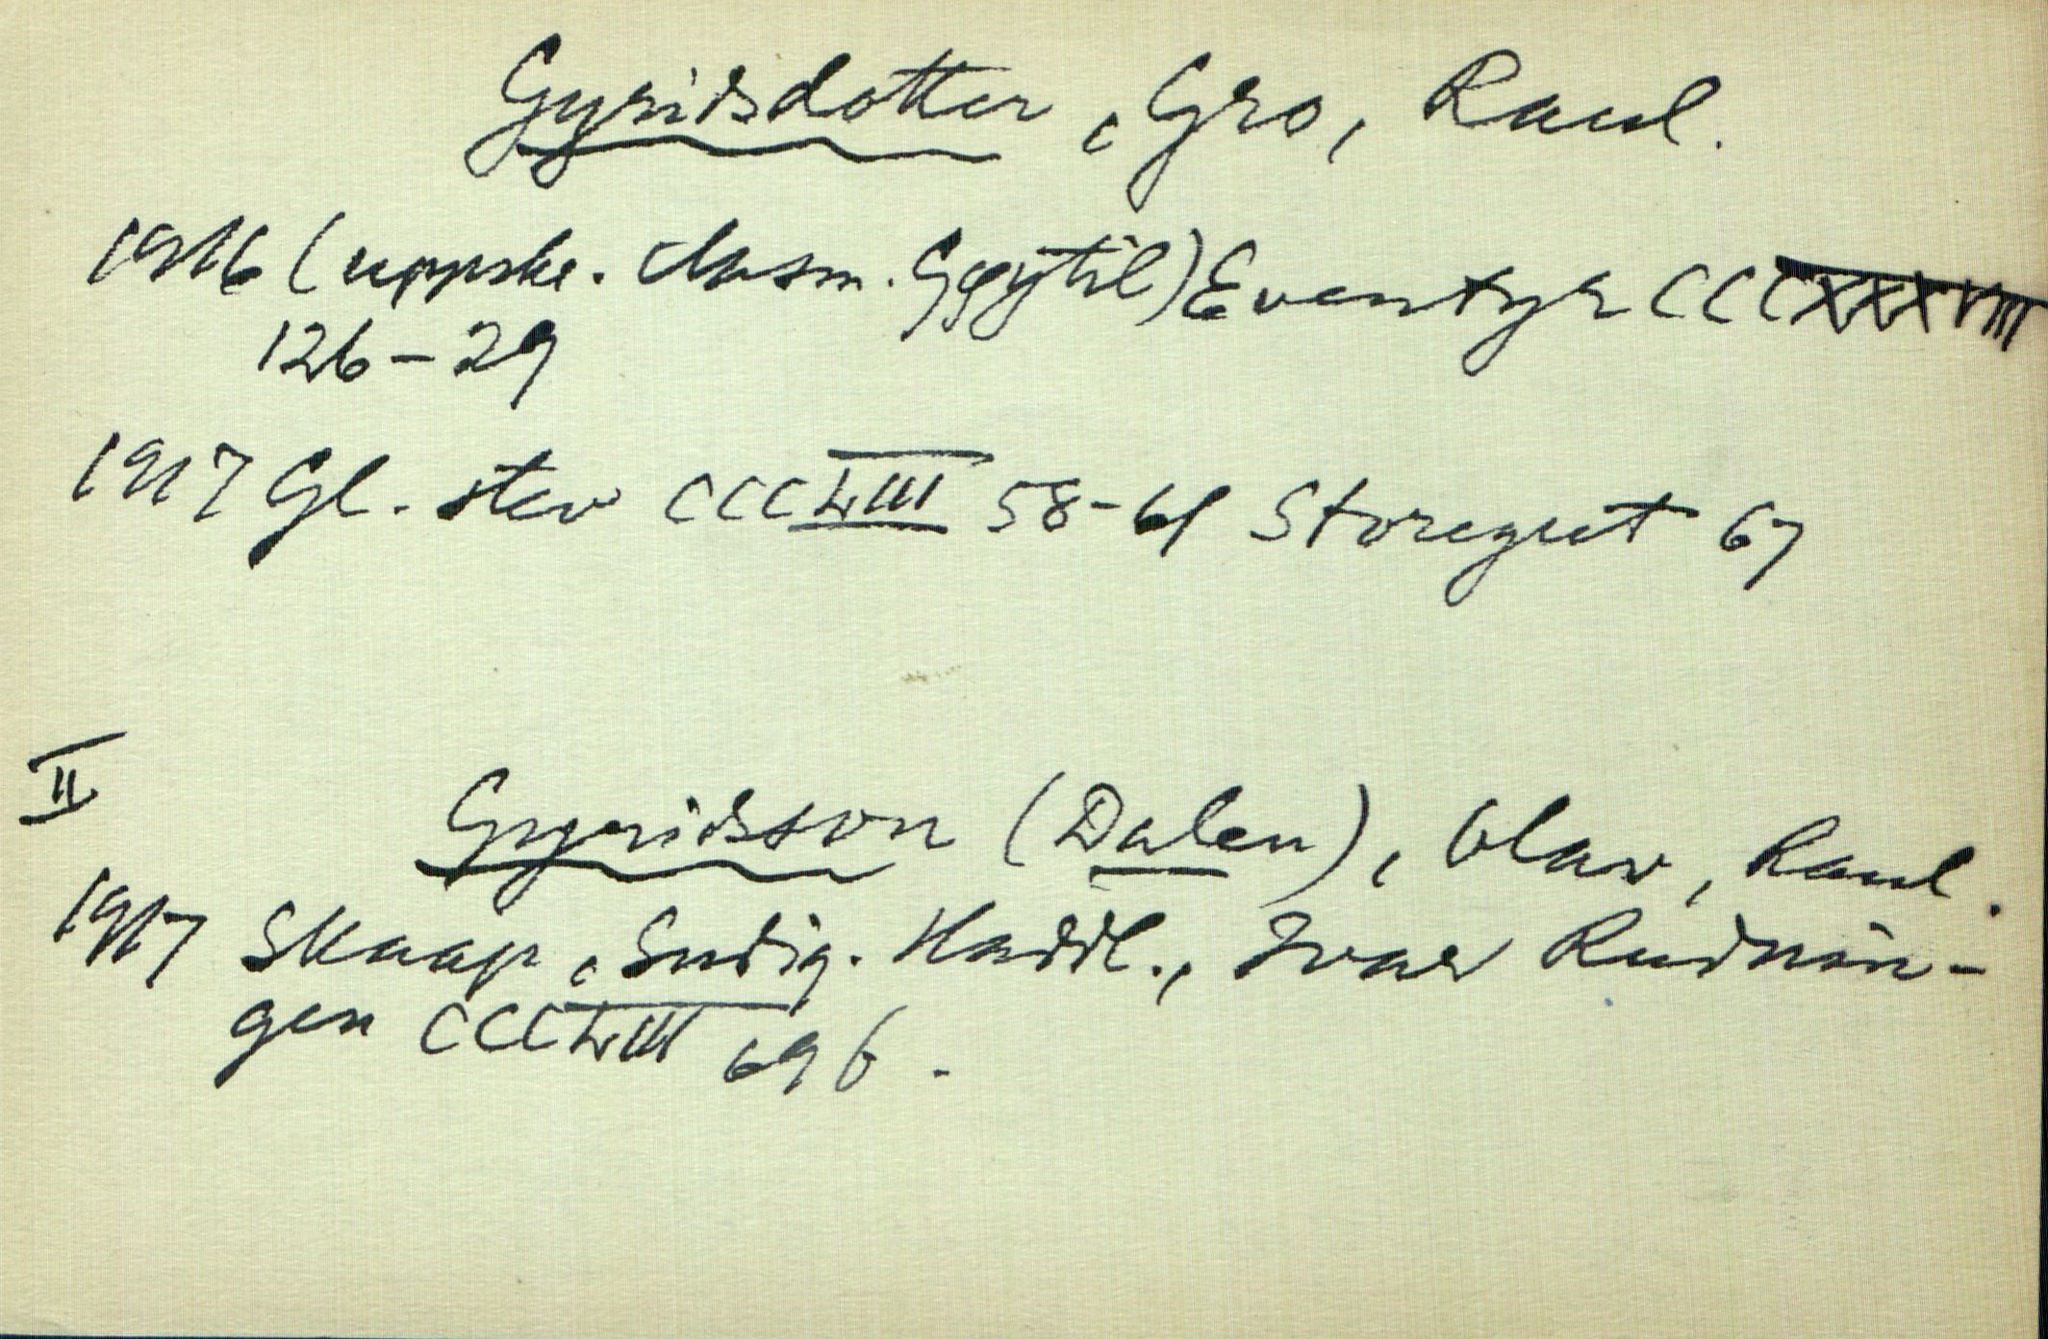 Gyridsdotter, Gro, Raul.
1916 (uppskr. Aasm. Gjytil) Eventyr CCCXXXVIII
126-29
1917 Gl. stev CCCLVIII 58-61 Storegut 67
II
Gyridsson (Dalen), Olav, Raul.
1917 Skaap, Sudig. Haddl., Ivar Rudnin-
gen CCCLVIII 696.